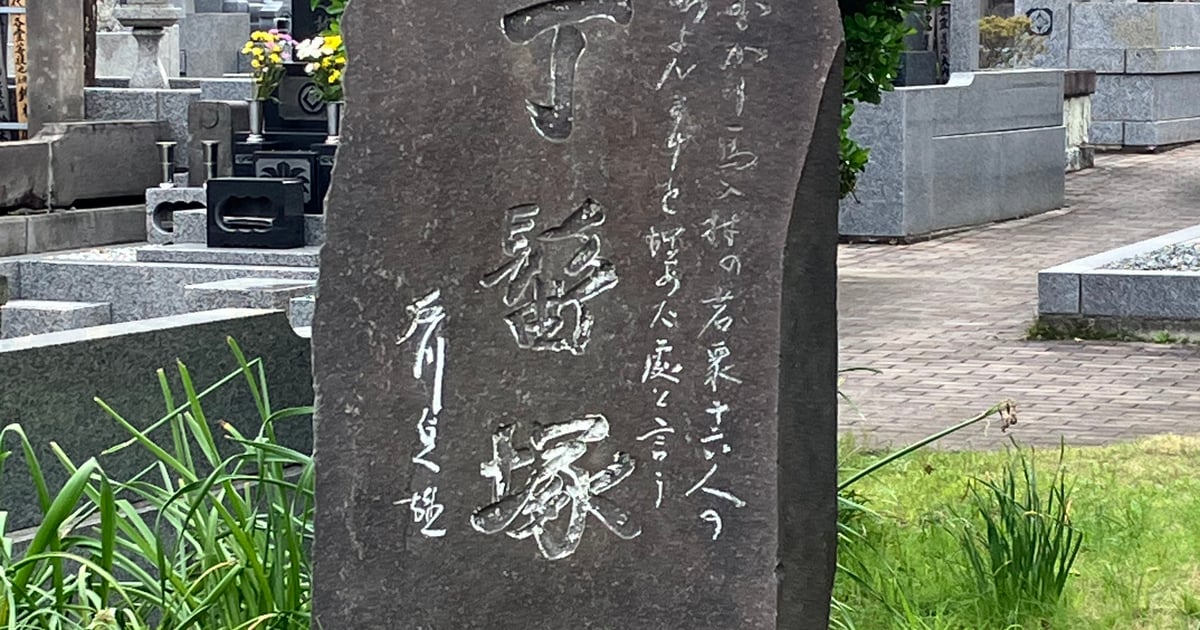 かわり馬入村の若衆十六人の
ちょんまげを埋めた處と言う
丁髷塚
戸川貞雄